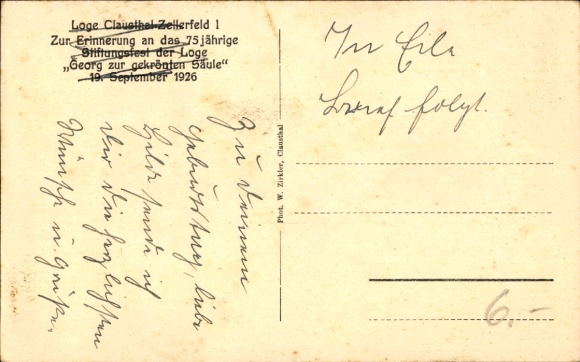 Loge Clausthal-Zellerfeld 1
Zur Erinnerung an das 75jährige
Stiftungsfest der Loge
„Georg zur gekrönten Säule“
19. September 1926
Zu Deinem
Geburtstag, liebe
Hilde sende ich
Dir die herzlichsten
Wünsche u. Grüße.
Phot. W. Zirkler, Clausthal
In Eile
Brief folgt.
6.-